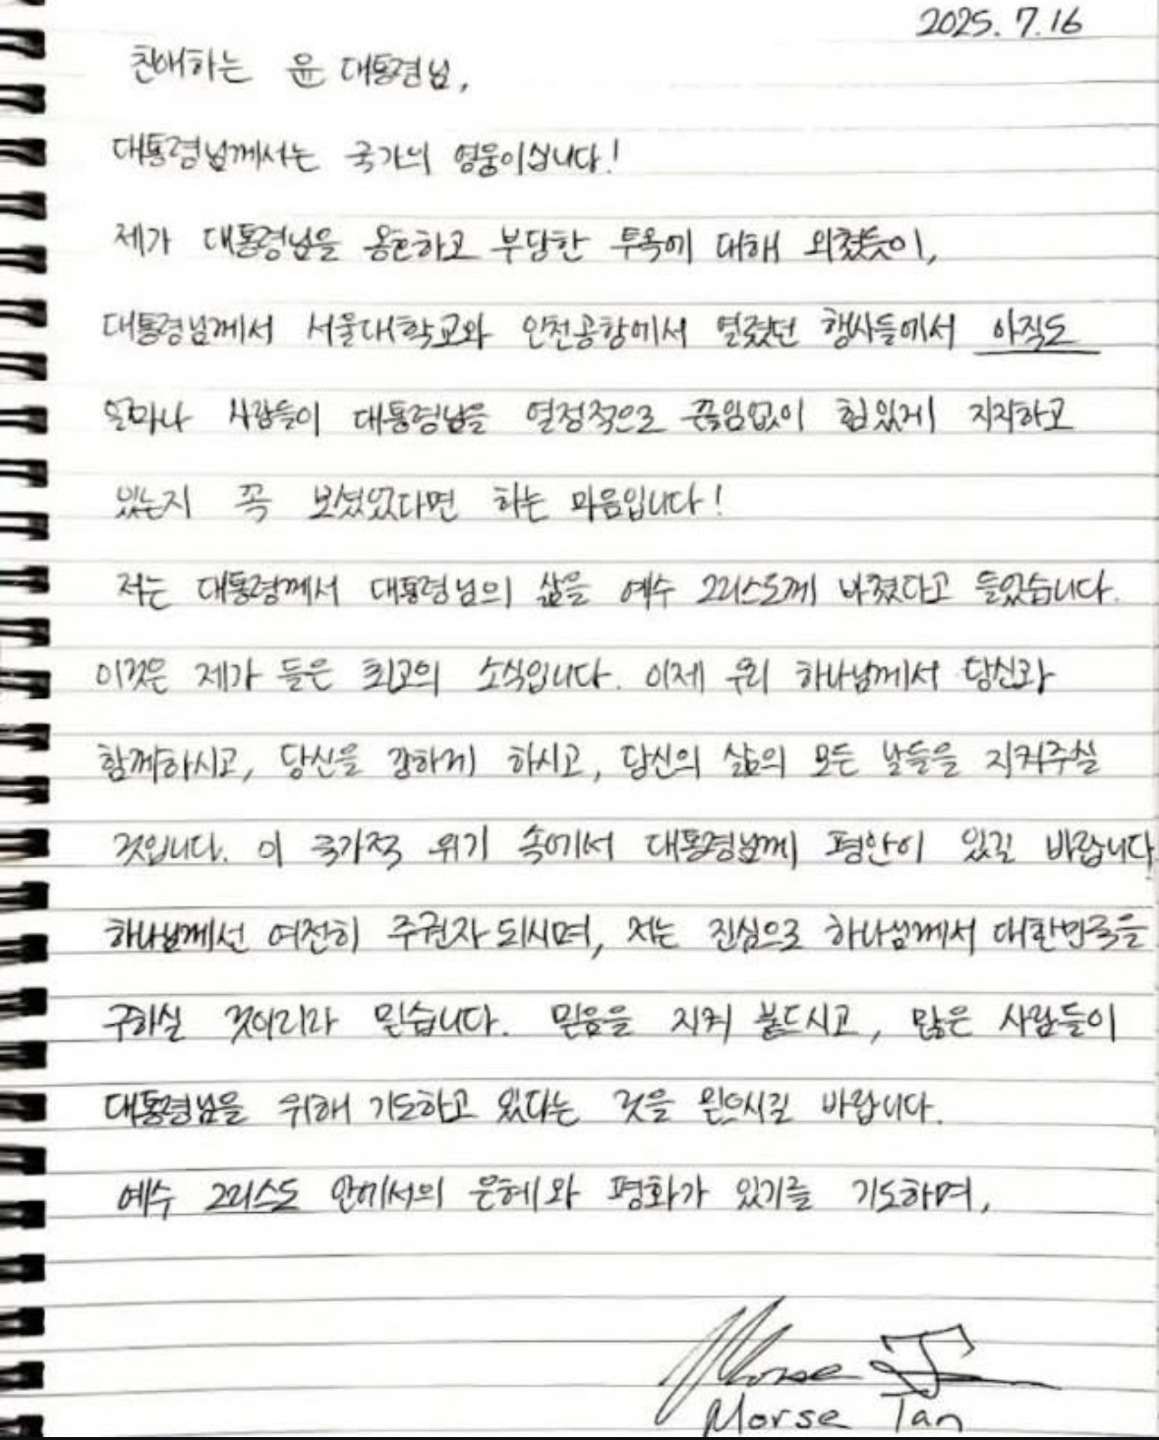 2025. 7. 16
친애하는 윤 대통령님,
대통령님께서는 국가의 영웅이십니다!
제가 대통령님을 옹호하고 부당한 투옥에 대해 외쳤듯이,
대통령님께서 서울대학교와 인천공항에서 열렸던 행사들에서 아직도
얼마나 사람들이 대통령님을 열정적으로 끊임없이 힘있게 지지하고
있는지 꼭 보셨었다면 하는 마음입니다!
저는 대통령께서 대통령님의 삶을 예수 그리스도께 바쳤다고 들었습니다.
이것은 제가 들은 최고의 소식입니다. 이제 우리 하나님께서 당신과
함께하시고, 당신을 강하게 하시고, 당신의 삶의 모든 날들을 지켜주실
것입니다. 이 국가적 위기 속에서 대통령님께 평안이 있길 바랍니다.
하나님께선 여전히 주권자 되시며, 저는 진심으로 하나님께서 대한민국을
구하실 것이리라 믿습니다. 믿음을 지켜 붙드시고, 많은 사람들이
대통령님을 위해 기도하고 있다는 것을 믿으시길 바랍니다.
예수 그리스도 안에서의 은혜와 평화가 있기를 기도하며,
Morse Tan